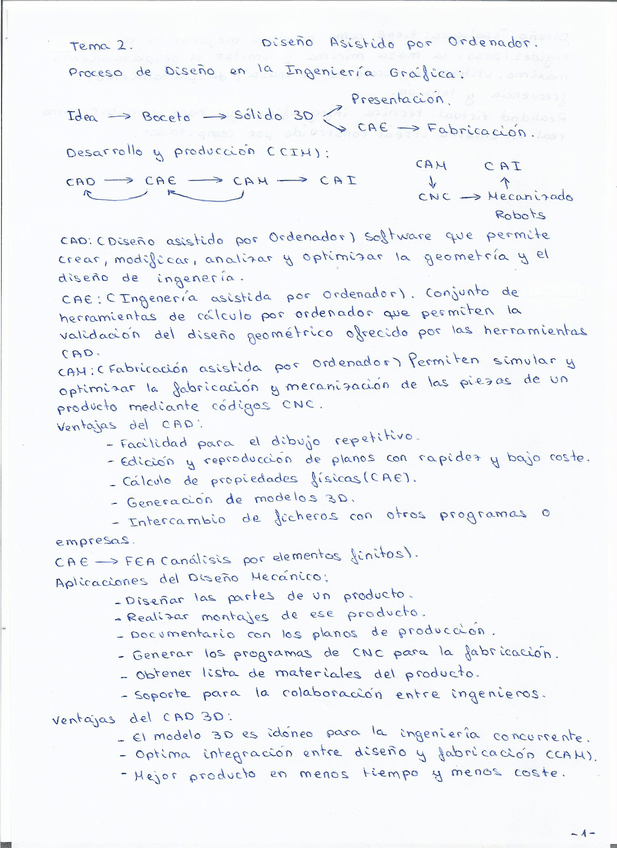 Tema 2. Diseño Asistido por Ordenador.
Proceso de Diseño en la Ingeniería Gráfica:
Presentación.
Idea → Boceto → Sólido 3D
CAE → Fabricación.
Desarrollo y producción (CIM):
CAM CAI
CAD → CAE → CAM → CAI
CNC → Mecanizado
Robots
CAD: (Diseño asistido por Ordenador) Software que permite
crear, modificar, analizar y optimizar la geometría y el
diseño de ingenería.
CAE: (Ingenería asistida por Ordenador). Conjunto de
herramientas de cálculo por ordenador que permiten la
validación del diseño geométrico ofrecido por las herramientas
CAD.
CAM: (Fabricación asistida por Ordenador) Permiten simular y
optimizar la fabricación y mecanización de las piezas de un
producto mediante códigos CNC.
Ventajas del CAD:
- Facilidad para el dibujo repetitivo.
- Edición y reproducción de planos con rapidez y bajo coste.
- Cálculo de propiedades físicas (CAE).
- Generación de modelos 3D.
- Intercambio de ficheros con otros programas o
empresas.
CAE → FEA (análisis por elementos finitos).
Aplicaciones del Diseño Mecánico:
- Diseñar las partes de un producto.
- Realizar montajes de ese producto.
- Documentario con los planos de producción.
- Generar los programas de CNC para la fabricación.
- Obtener lista de materiales del producto.
- Soporte para la colaboración entre ingenieros.
Ventajas del CAD 3D:
- El modelo 3D es idóneo para la ingeniería concurrente.
- Optima integración entre diseño y fabricación (CAM).
- Mejor producto en menos tiempo y menos coste.
-1-